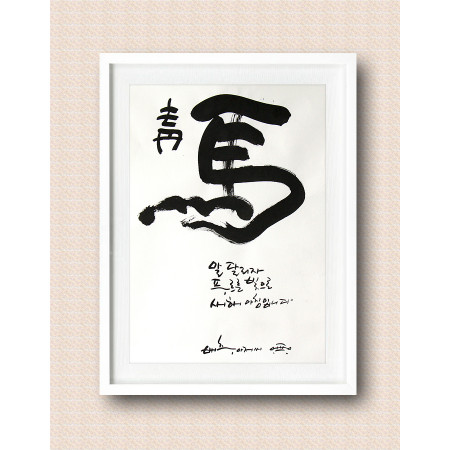 靑
馬
말 달리자
푸르른 빛으로
새해 아침입니다